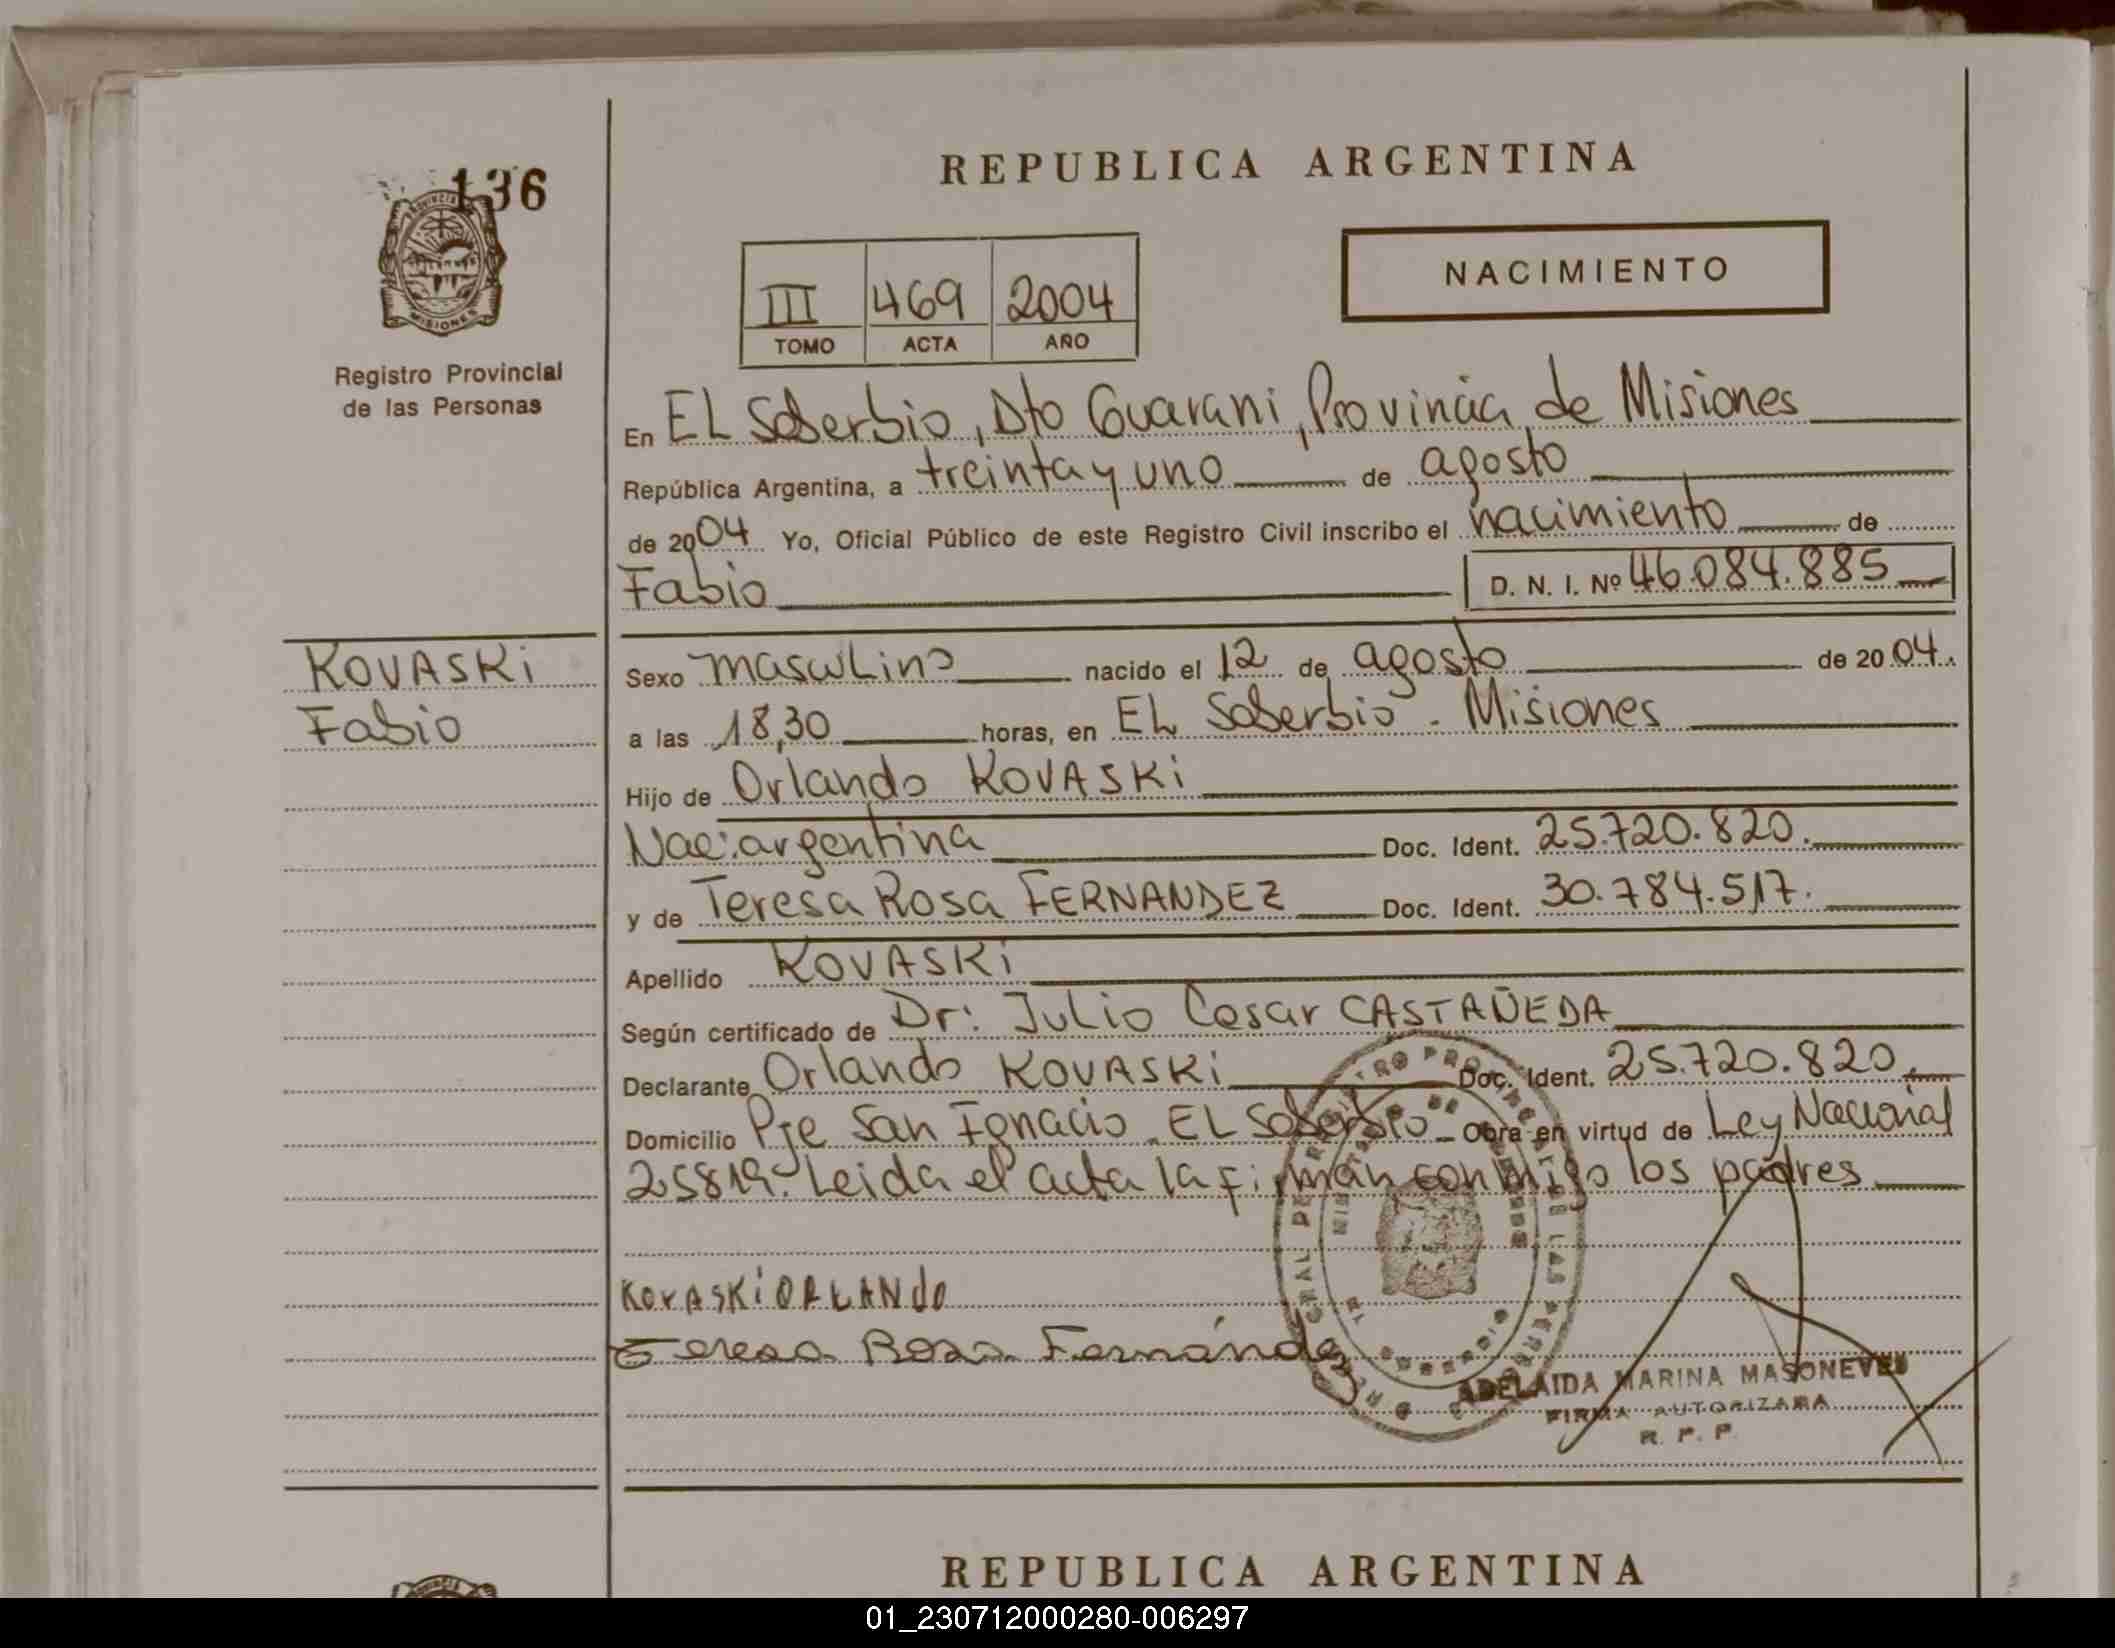 136
PROVINCIA
MISIONES
Registro Provincial
de las Personas
REPUBLICA ARGENTINA
NACIMIENTO
III 469 2004
TOMO ACTA AÑO
En EL Soberbio, Dto Guarani, Provincia de Misiones
República Argentina, a treinta y uno de agosto
de 2004 Yo, Oficial Público de este Registro Civil inscribo el nacimiento de
Fabio D. N. I. Nº 46.084.885
KOVASKi
Fabio
Sexo masculino nacido el 12 de agosto de 2004.
a las 18,30 horas, en EL Soberbio - Misiones
Hijo de Orlando KOVASKi
Nac: argentina Doc. Ident. 25.720.820.
y de Teresa Rosa FERNANDEZ Doc. Ident. 30.784.517.
Apellido KOVASKi
Según certificado de Dr: Julio Cesar CASTAÑEDA
Declarante Orlando KOVASKi Doc. Ident. 25.720.820.
Domicilio Pje San Ignacio - EL Soberbio - Obra en virtud de Ley Nacional
25819. Leida el acta la firman conmigo los padres
KovASKi ORLANdo
Teresa Rosa Fernández
ADELAIDA MARINA MASONEVES
FIRMA AUTORIZADA
R. P. P.
REPUBLICA ARGENTINA
01_230712000280-006297